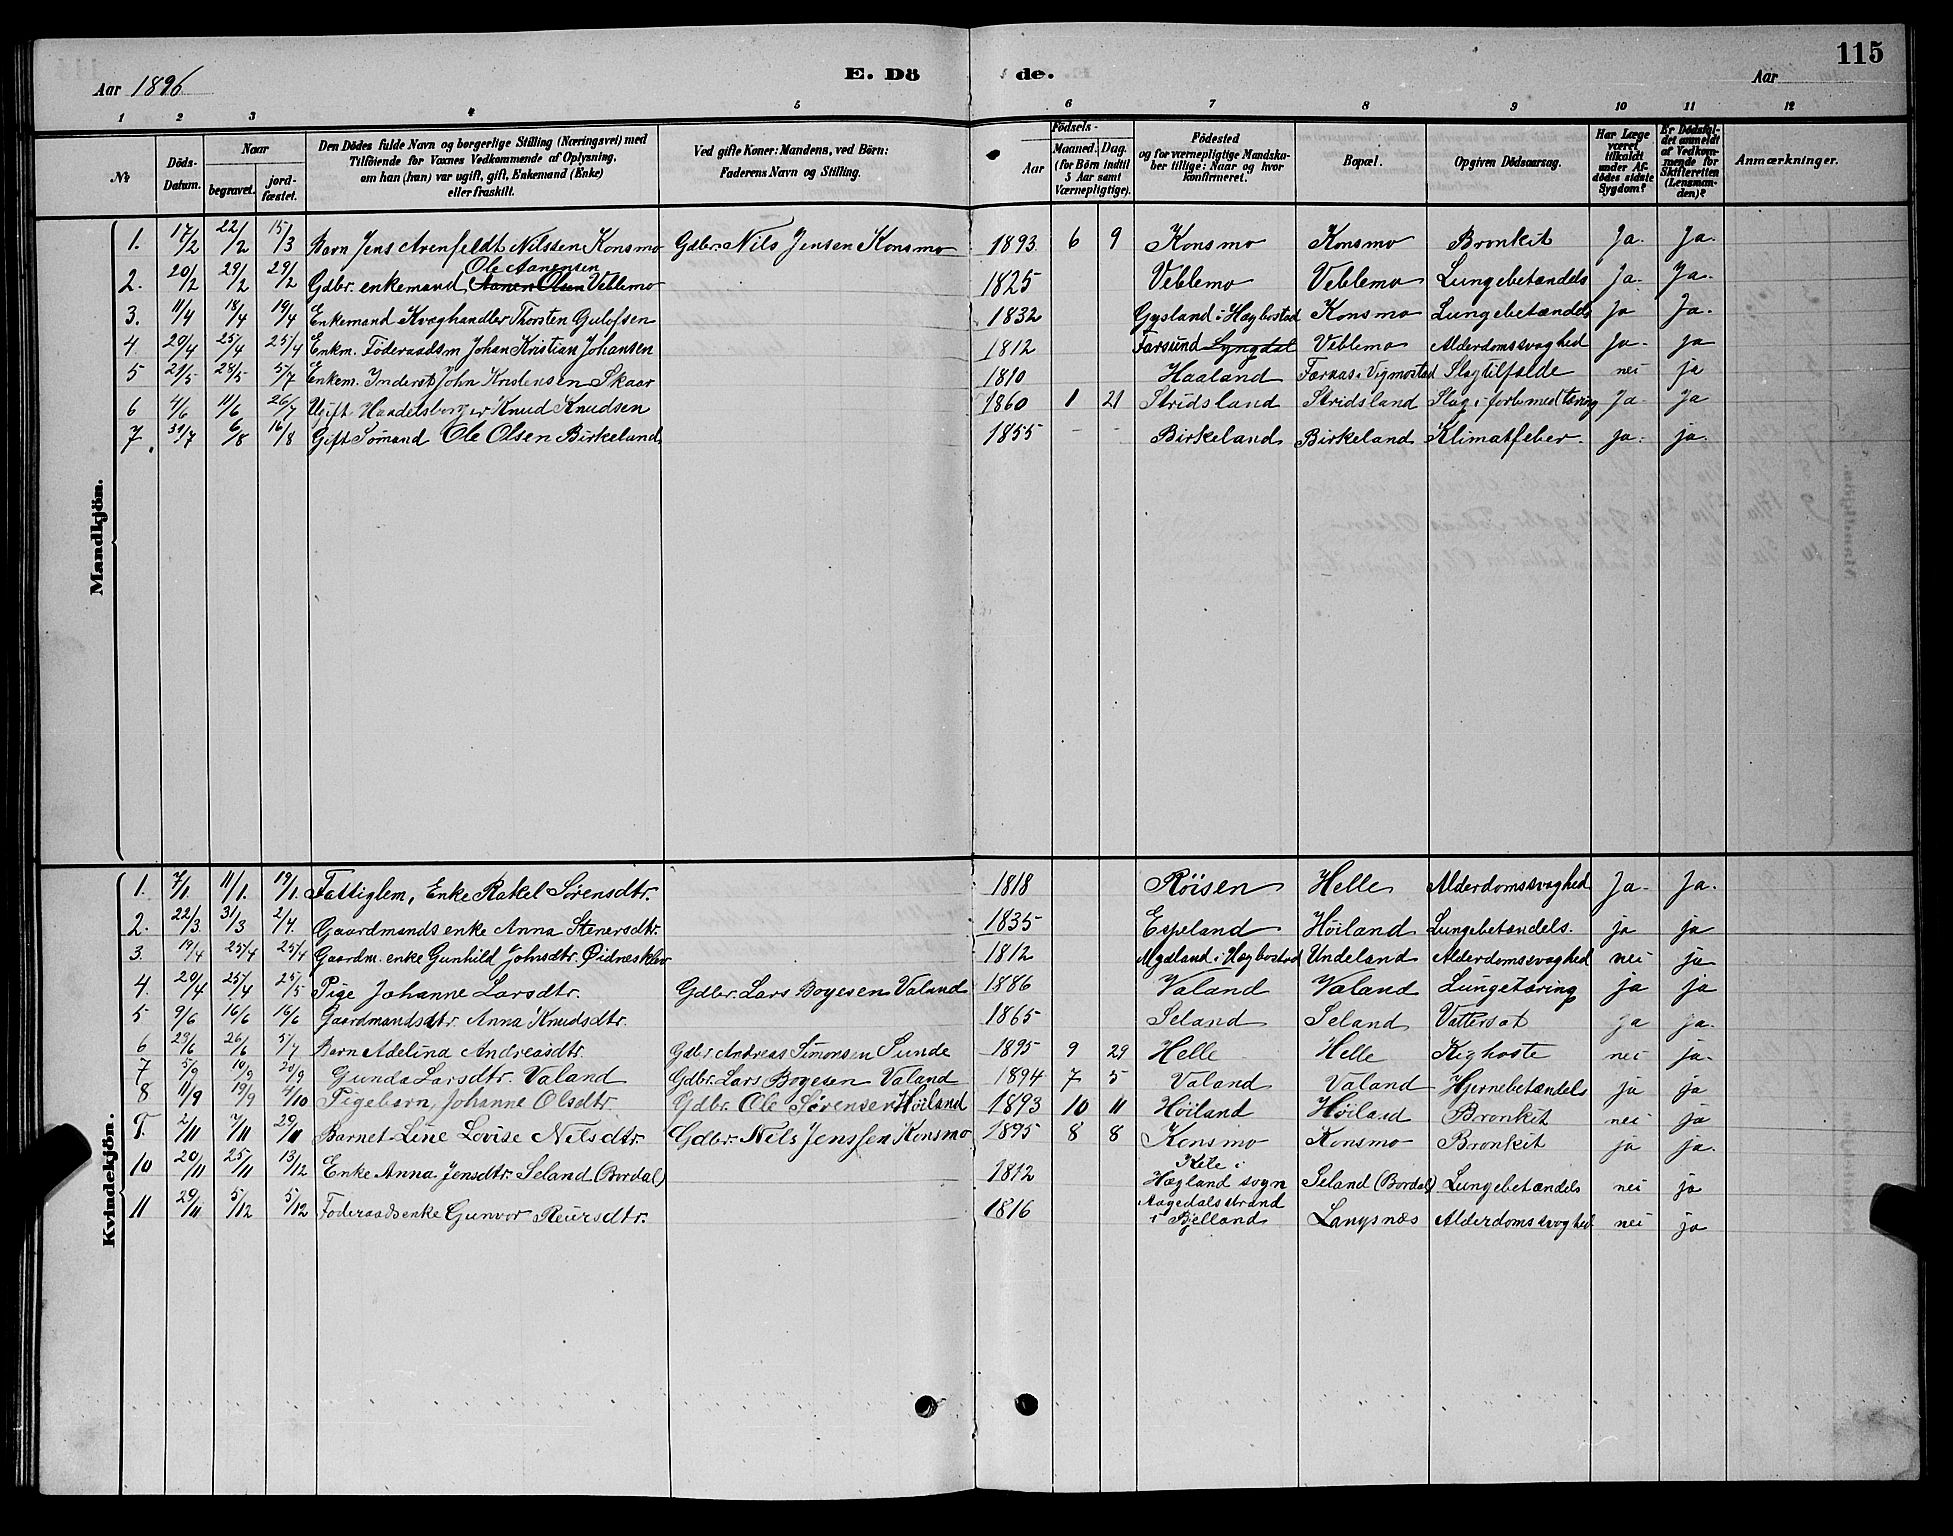 115
Aar 1896 E. Dö de. Aar
1 2 3 4 5 6 7 8 9 10 11 12
№ Döds-Datum. Naar begravet. jord-fæstet. Den Dödes fulde Navn og borgerlige Stilling (Næringsvei) med Tilföiende for Voxnes Vedkommende af Oplysning, om han (hun) var ugift, gift, Enkemand (Enke) eller fraskilt. Ved gifte Koner: Mandens, ved Börn: Faderens Navn og Stilling. Födsels- Aar Maaned. Dag. (for Börn indtil 5 Aar samt Værnepligtige). Födested og for værnepligtige Mandskaber tillige: Naar og hvor konfirmeret. Bopæl. Opgiven Dödsaarsag. Har Læge været tilkaldt under Afdödes sidste Sygdom? Er Dödsfaldet anmeldt af Vedkommende for Skifteretten (Lensmanden)? Anmærkninger.
Mandkjön.
1. 17/2 22/2 15/3 Barn Jens Arenfeldt Nilssen Konsmo Gdbr. Nils Jensen Konsmo 1893 6 9 Konsmo Konsmo Bronkit Ja. Ja.
Ole Aanensen
2. 20/2 29/2 29/2 Gdbr. enkemand Aanen Olsen Veblemo 1825 Veblemo Veblemo Lungebetændels Ja. Ja.
3. 11/4 18/4 19/4 Enkemand Kvæghandler Thorsten Gulofsen 1832 Gysland i Hægbostad Konsmo Lungebetændels Ja Ja.
4. 20/4 25/4 25/4 Enkm. Föderaadsm Johan Kristian Johansen 1812 Farsund Lyngdal Veblemo Alderdomssvaghed Ja. Ja
5 21/5 28/5 5/7 Enkem. Inderst John Kristensen Skaar 1810 Haaland Færaas i Vigmostad Slagtilfælde nei ja
6 4/6 11/6 26/7 Ugift Handelsborger Knud Knudsen 1860 1 21 Stridsland Stridsland Slag i forb. med tæring Ja. Ja
7. 31/7 6/8 16/8 Gift Sömand Ole Olsen Birkeland 1855 - - Birkeland Birkeland Klimatfeber. ja. ja.
Kvindekjön.
1. 7/1 11/1. 19/1. Fattiglem, Enke Rakel Sørensdtr. 1818 Röisen Helle Alderdomssvaghed Ja. Ja.
2. 22/3 31/3 2/4. Gaardmands enke Anna Stenersdtr. 1835 Espeland Höiland Lungebetændels. ja ja
3. 19/4 25/4 25/4 Gaardm. enke Gunhild Johnsdtr. Øidnesklev 1812 Mysland i Hægbostad Undeland Alderdomssvaghed nei ja
4. 20/4 25/4 25/5 Pige Johanne Larsdtr. Gdbr. Lars Boyesen Valand 1886 Valand Valand Lungetæring ja ja
5 9/6 16/6 16/6 Gaardmandsdtr. Anna Knudsdtr. 1865 Seland Seland Vattersot ja ja.
6 23/6 26/6 5/7 Barn Adelina Andreasdtr. Gdbr. Andreas Simonsen Sunde 1895 9 29 Helle Helle Kighoste nei ja.
7 5/9 10/9 20/9 Gunda Larsdtr. Valand Gdbr. Lars Boyesen Valand 1894 7 5 Valand Valand Hjernebetændels ja ja
8 11/9 19/9 4/10 Pigebarn, Johanne Olsdtr. Gdbr. Ole Sörensen Höiland 1893 10 11 Höiland Höiland Bronkit nei ja
9. 2/11 7/11 29/11 Barnet Line Lovise Nilsdtr. Gdbr. Nils Jenssen Konsmo 1895 8 8 Konsmo Konsmo Bronkit ja ja.
10 20/11 25/11 13/12 Enke Anna Jensdtr. Seland (Bordal) 1812 Kile i Hægland sogn Seland (Bordal) Lungebetændels nei ja
11 29/11 5/12 5/12 Föderaadsenke Gunvor Reiersdtr. 1816 Aagedalsstrand i Bjelland Langnæs Alderdomssvaghed nei ja